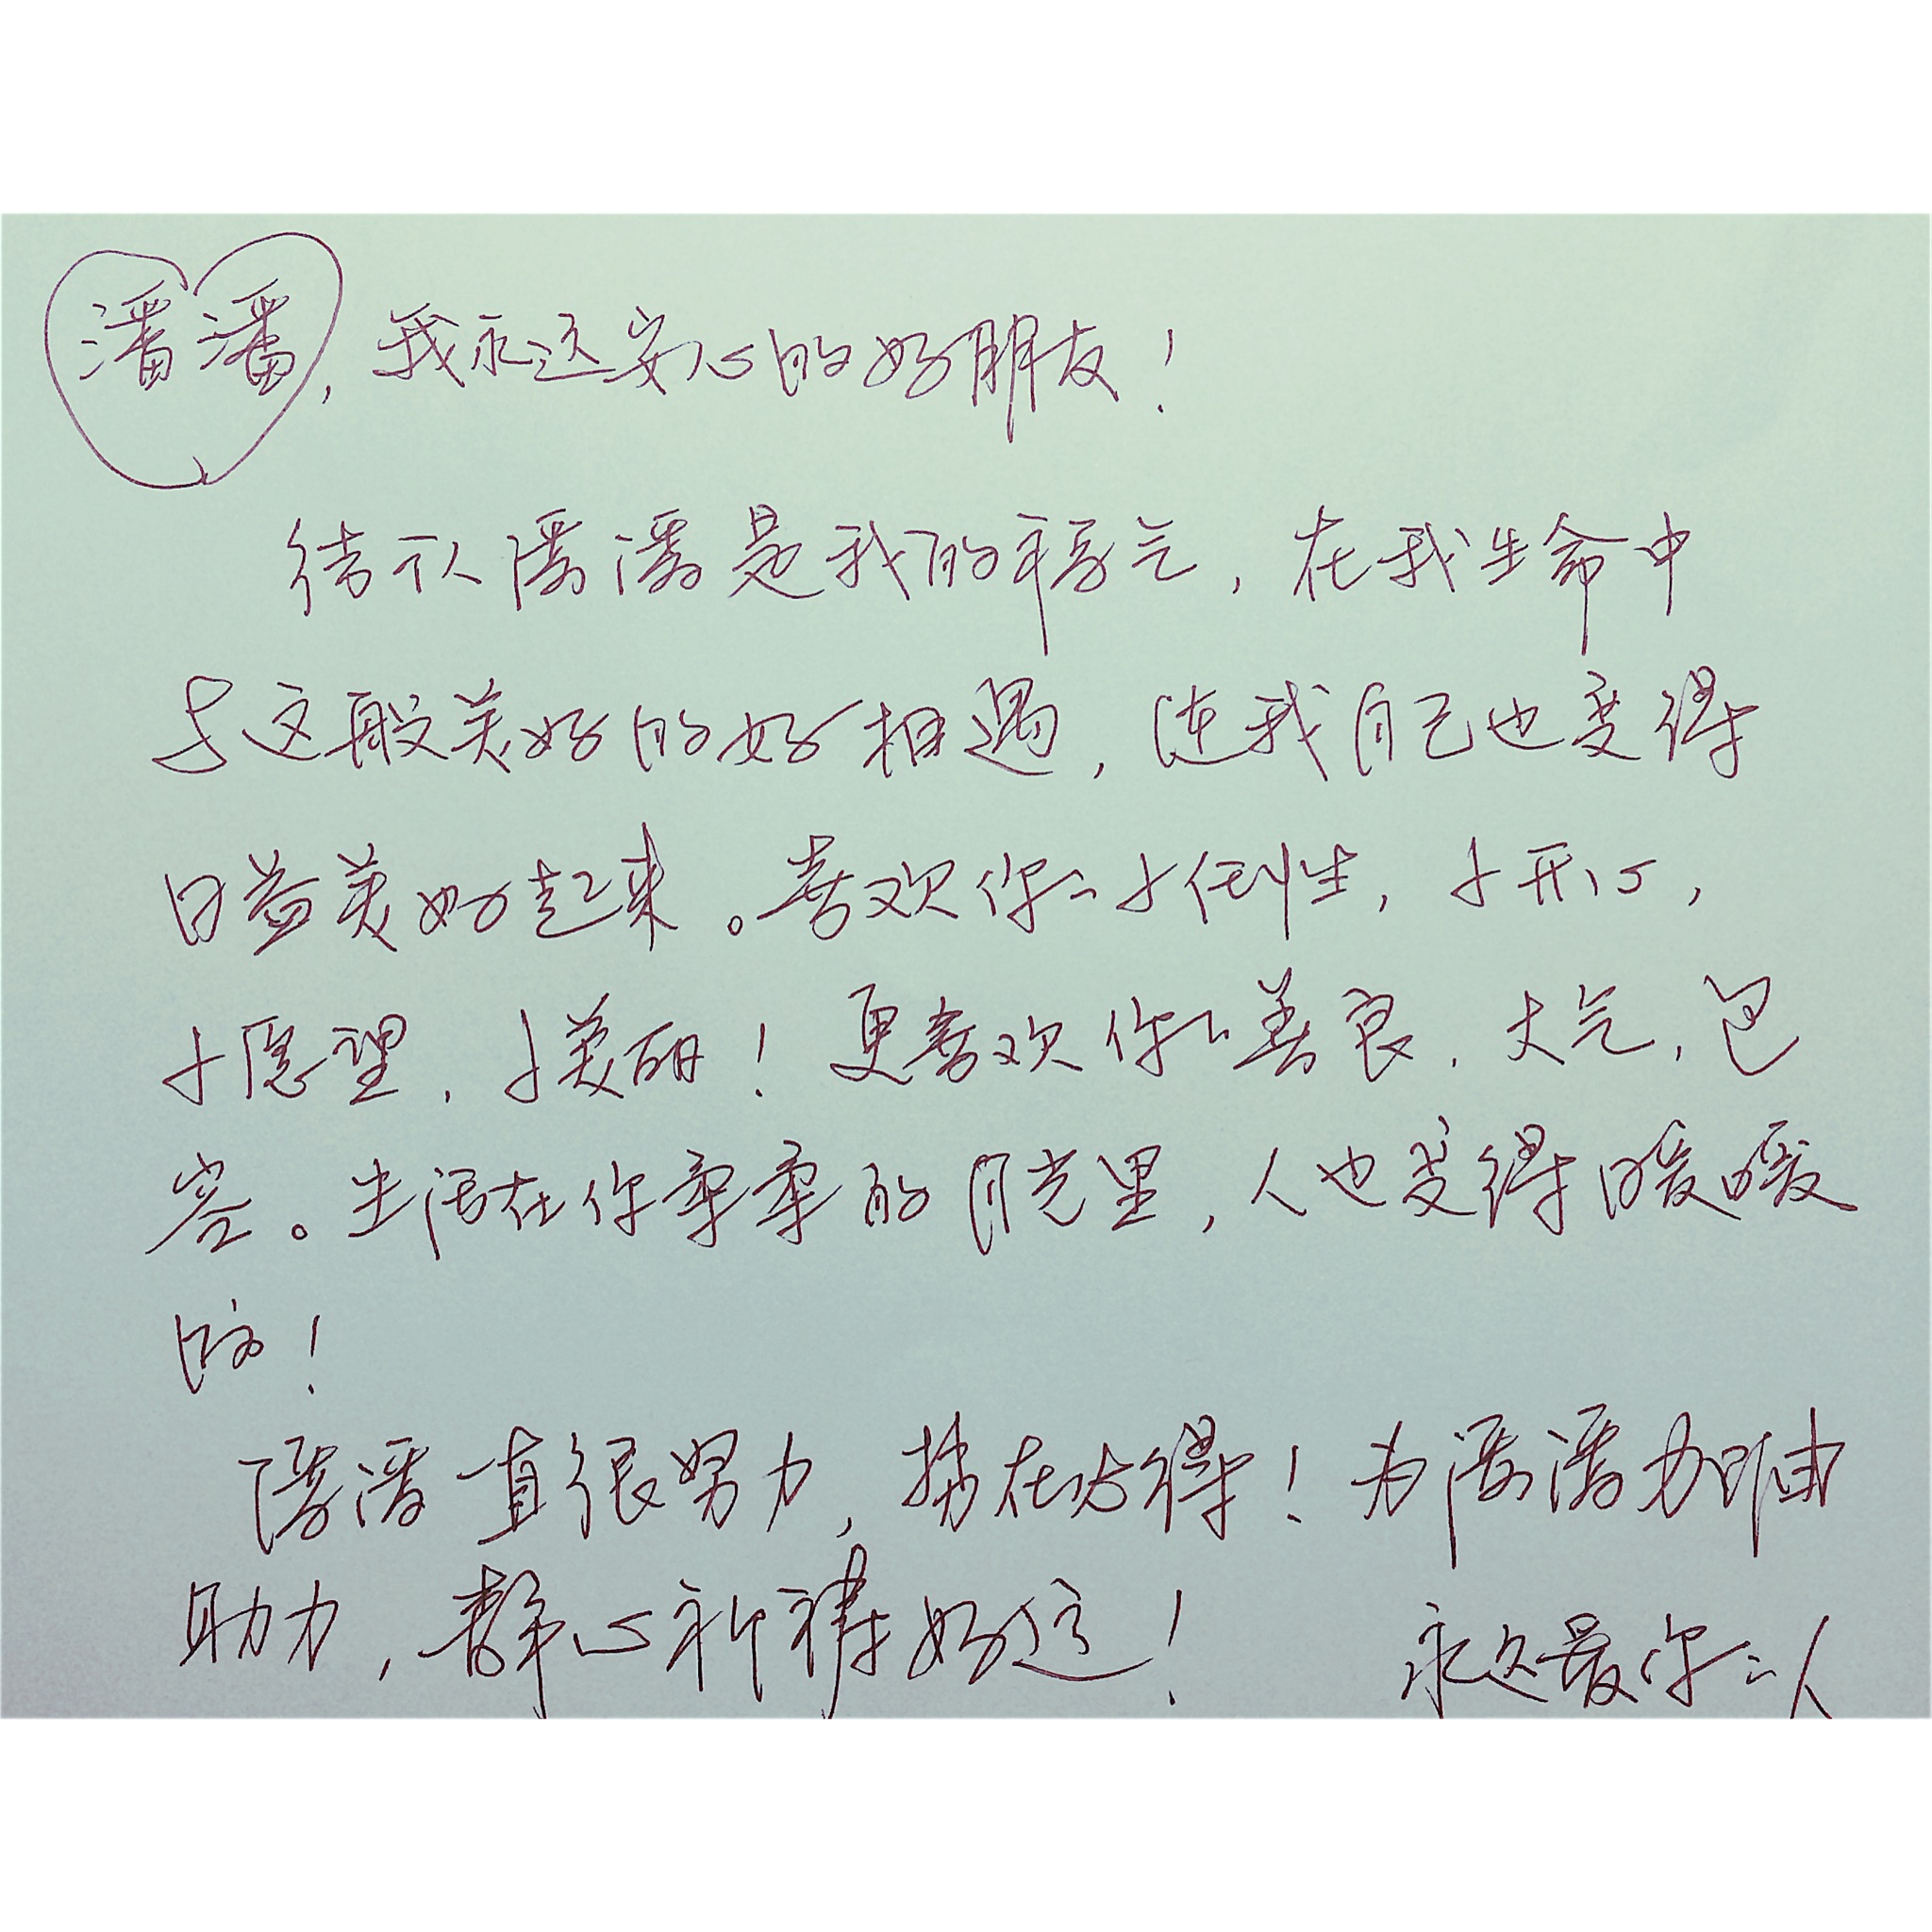 潘潘，我永远安心的好朋友！
结识潘潘是我的福气，在我生命中
与这般美好的好相遇，连我自己也变得
日益美好起来。喜欢你小任性，小开心，
小愿望，小美丽！更喜欢你善良，大气，包
容。生活在你柔柔的月光里，人也变得暖暖
的！
潘潘一直很努力，势在必得！为潘潘加油
助力，静心祈祷好运！
永远最你人